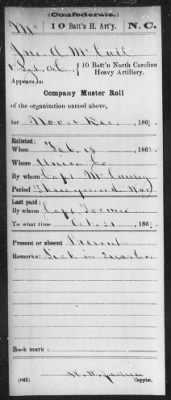 (Confederate.)
M 10 Batt'n H. Art'y. N.C.
Jno. A McCall
Co. , 10 Batt'n North Carolina
Heavy Artillery.
Appears on
Company Muster Roll
of the organization named above,
for Nov & Dec, 186
Enlisted:
When Feb. 186
Where Union Co
By whom Capt
Period Three years or War
Last paid:
By whom Capt
To what time Oct. 31, 186
Present or absent Present
Remarks: Sick in Quarters
Book mark:
(642) Copyist.